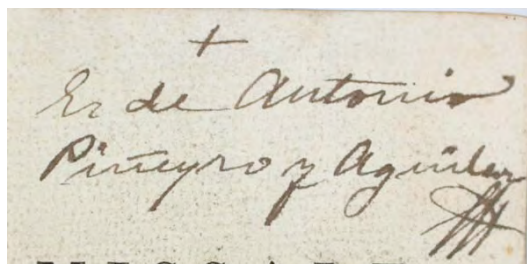 +
Es de Antonio
Piñeyro y Aguilar